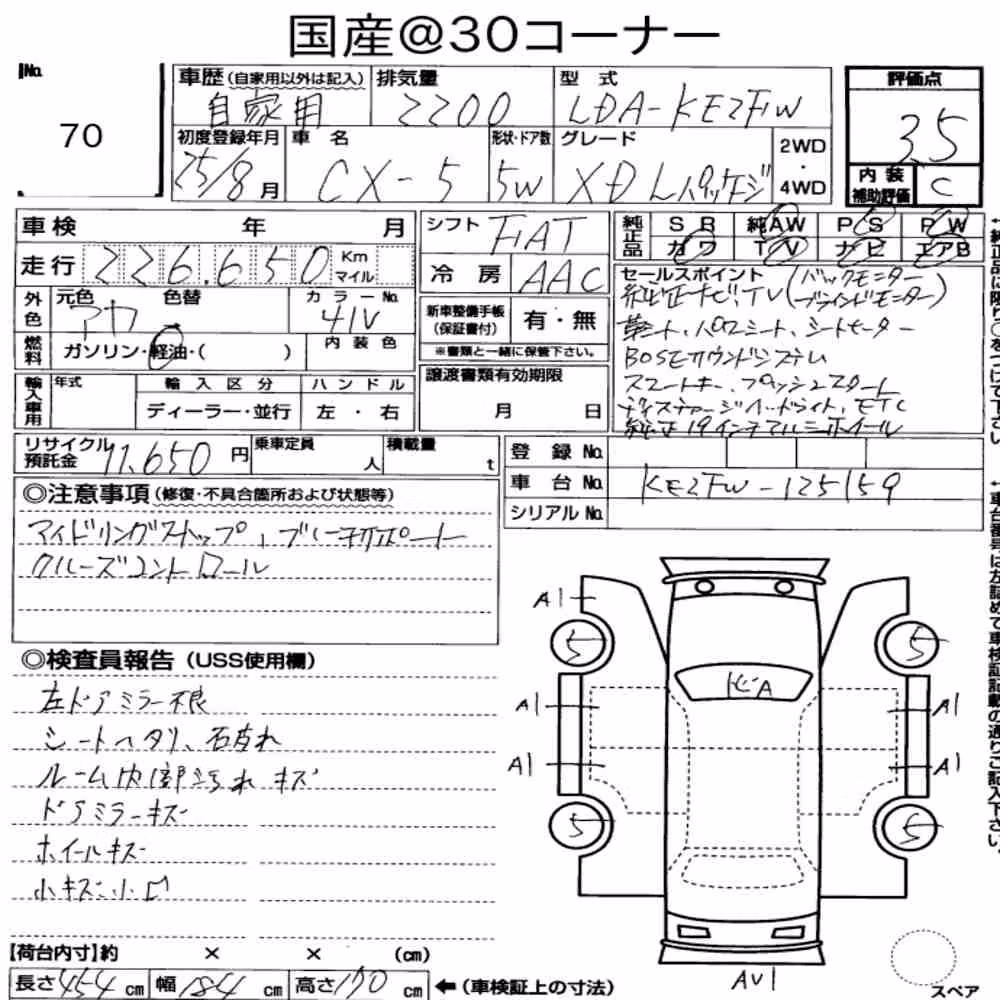 国産@30コーナー
No.
70
車歴(自家用以外は記入)
自家用
排気量
2200
型式
LDA-KE2FW
評価点
3.5
内装
補助評価
C
初度登録年月
25/8月
車名
CX-5
形状・ドア数
5W
グレード
XD Lパッケージ
2WD
・
4WD
車検 年 月
走行 226.650 Km
マイル
シフト FAT
冷房 AAC
純正品
SR 純AW PS PW
カワ TV ナビ エアB
外色
元色 色替
アカ
カラーNo.
41V
燃料
ガソリン・軽油・( )
内装色
新車整備手帳
(保証書付)
有・無
※書類と一緒に保管下さい。
セールスポイント(バックモニター
純正ナビ.TV(ブラインドモニター)
革シート、パワーシート、シートヒーター
BOSEサウンドシステム
スマートキー、プッシュスタート
ディスチャージヘッドライト、ETC
純正19インチアルミホイール
輸入車用
年式
輸入区分
ハンドル
ディーラー・並行
左・右
譲渡書類有効期限
月 日
リサイクル
預託金
11.650円
乗車定員
人
積載量
t
登録No.
車台No. KE2FW-125159
シリアルNo.
◎注意事項(修復・不具合箇所および状態等)
アイドリングストップ、ブレーキサポート
クルーズコントロール
◎検査員報告(USS使用欄)
左ドアミラー不良
シートヘタリ、スレ
ルーム内部汚れ キズ
ドアミラーキズ
ホイールキズ
小キズ小凹
A1
5
5
ヒA
A1
A1
A1
A1
5
5
AU1
スペア
【荷台内寸】約 × × (cm)
長さ454cm 幅184cm 高さ170cm ←(車検証上の寸法)
↑純正品に限り○をつけて下さい
↑車台番号は左詰めで車検証記載の通りご記入下さい。